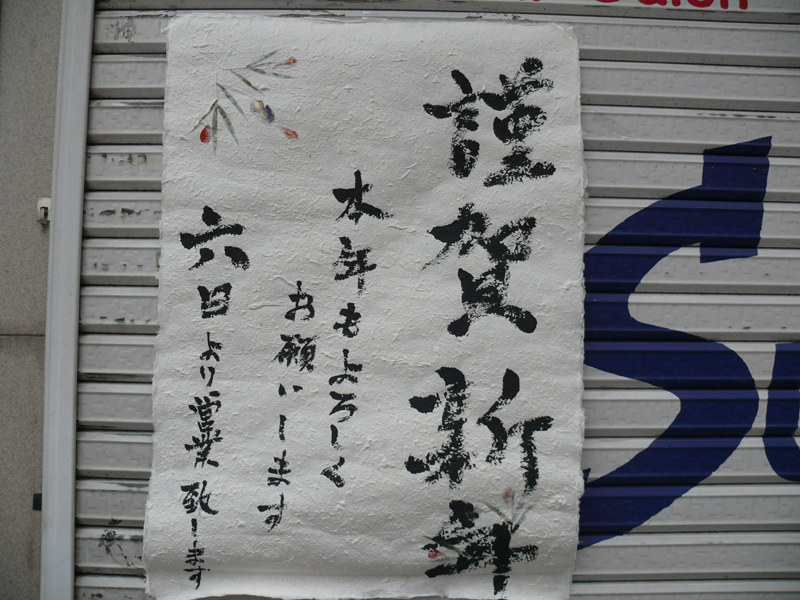 謹賀新年
本年もよろしく
お願いします
六日より営業致します